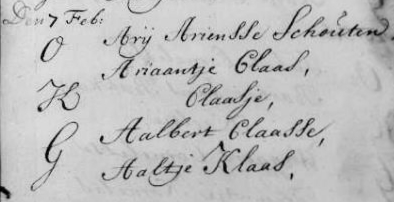 Den 7 Feb:
O Arij Ariensse Schouten
Ariaantje Claas,
K Claasje,
Aalbert Claasse,
G Aaltje Klaas,